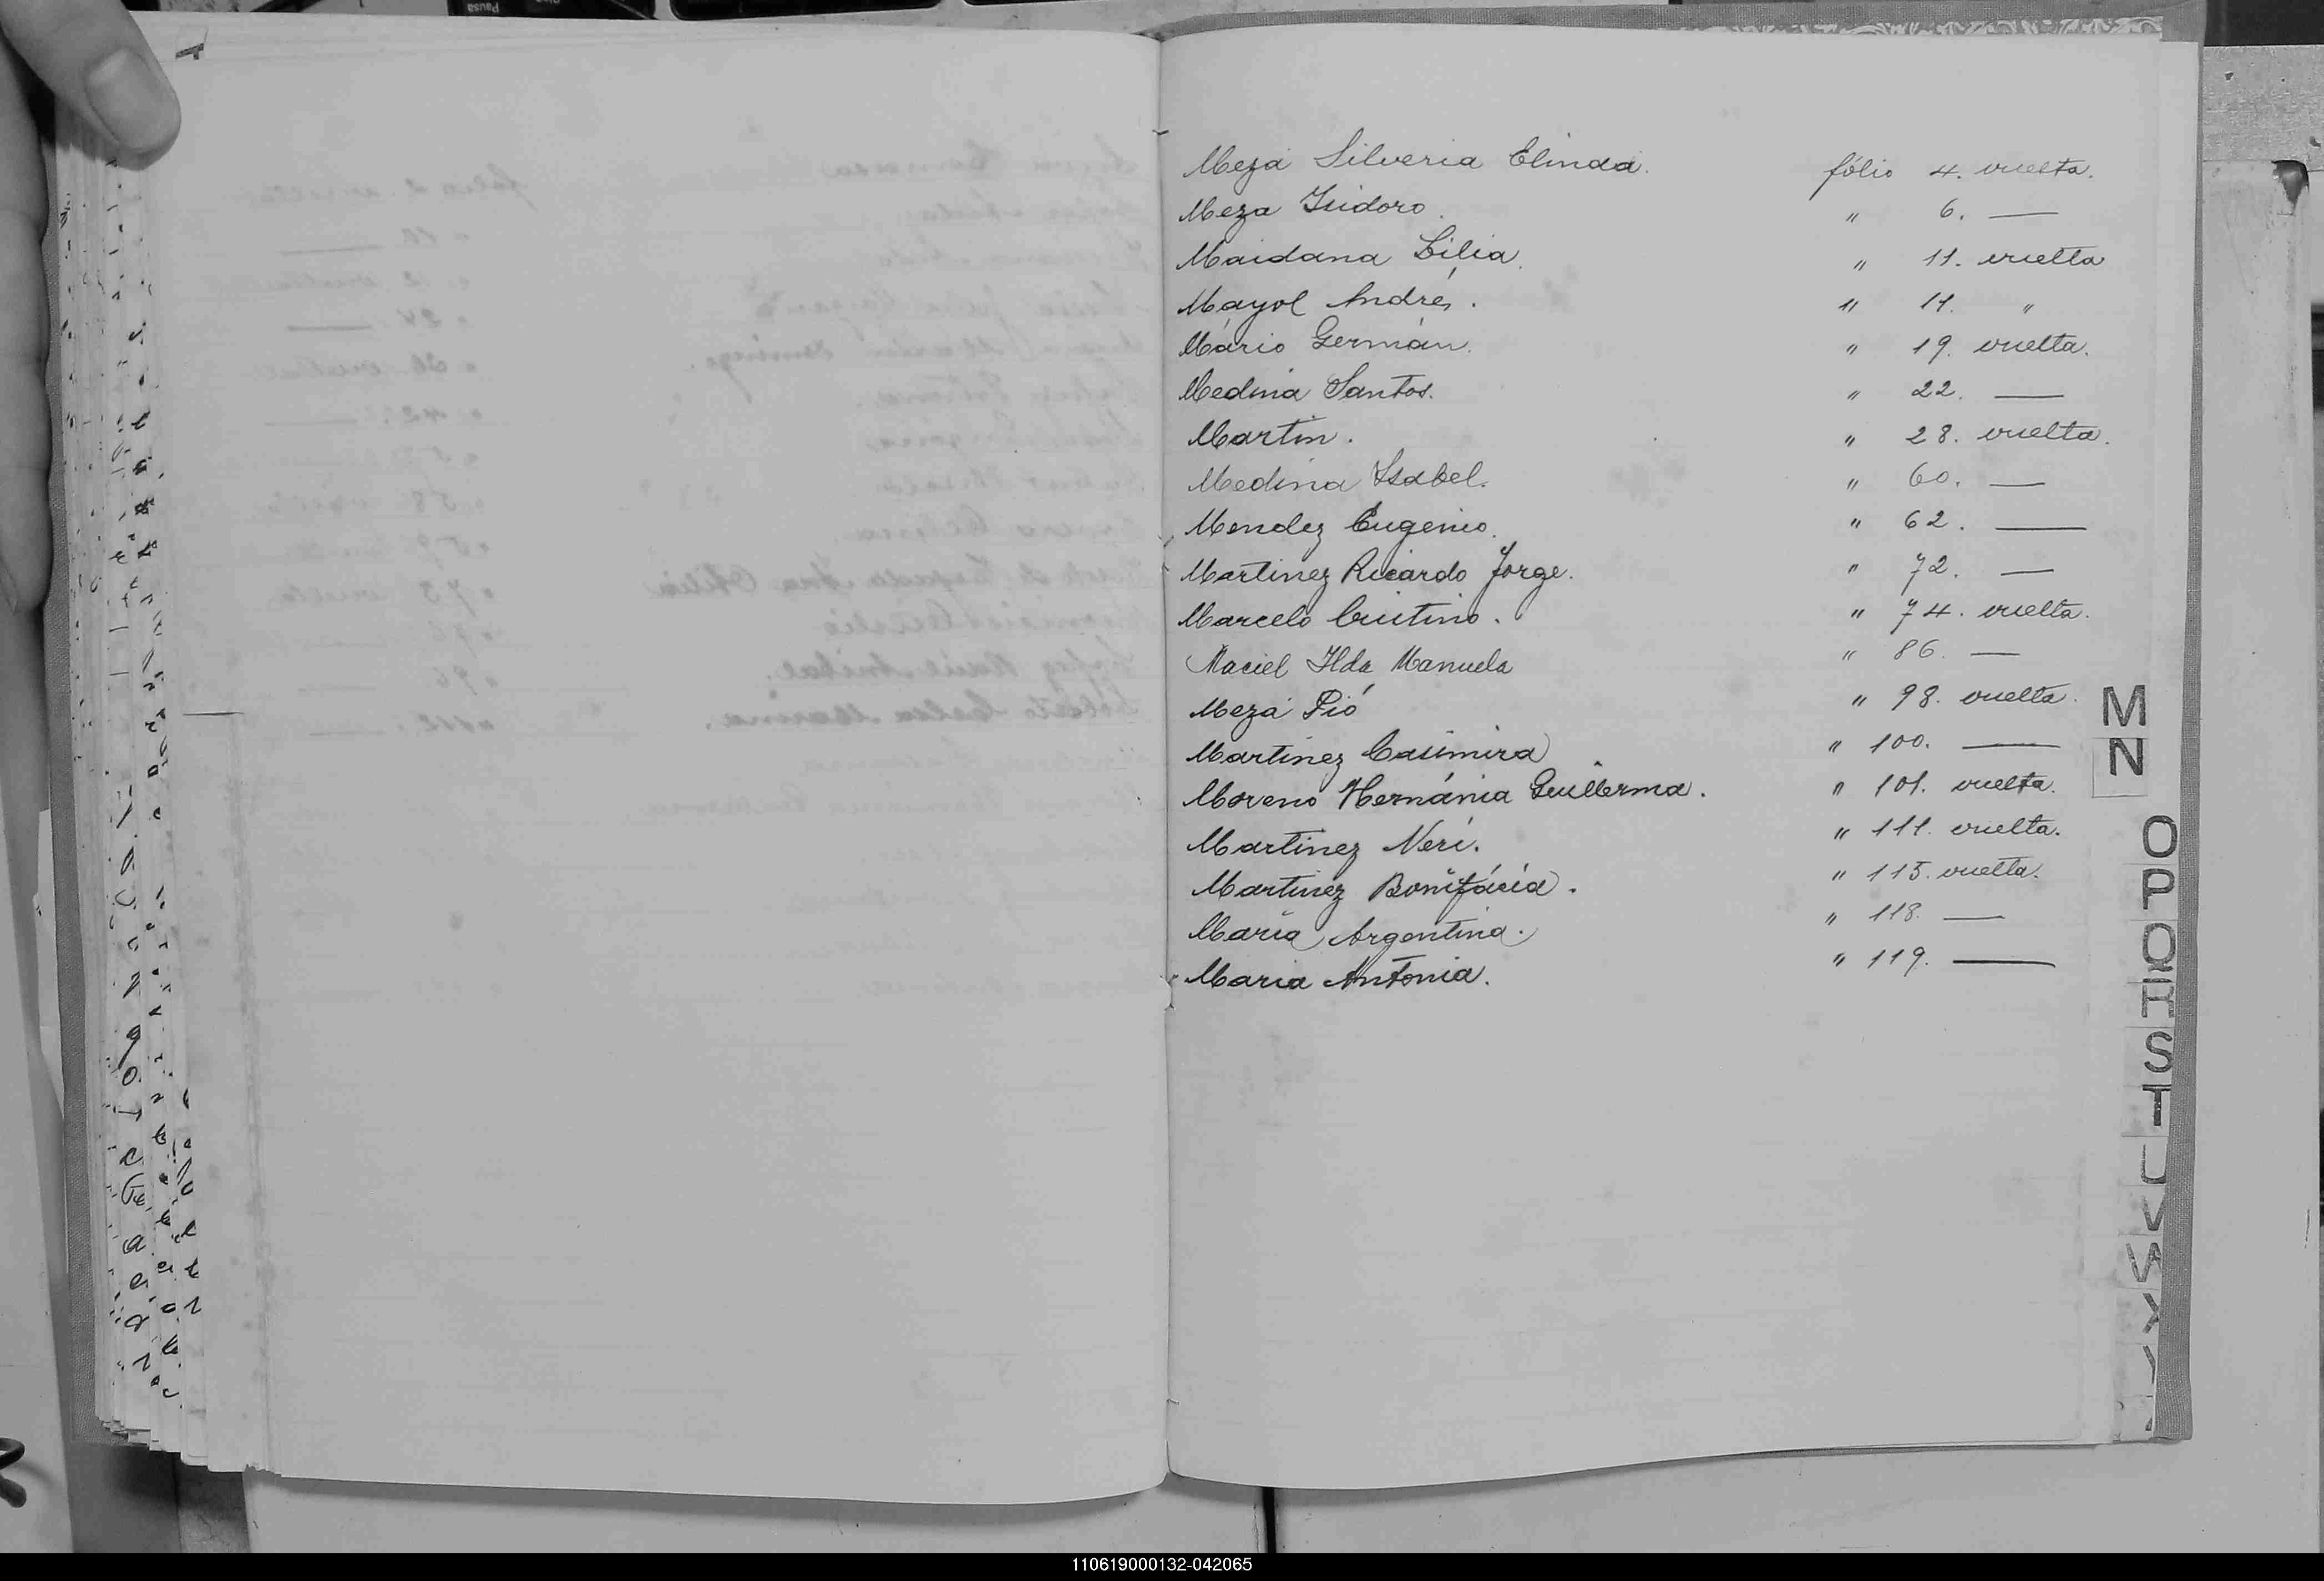 Meza Silveria Elinda. fólio 4. vuelta.
Meza Isidoro. " 6. —
Maidana Lilia. " 11. vuelta
Mayol Andrés. " 11. "
Mário Germán. " 19. vuelta.
Medina Santos. " 22. —
Martin. " 28. vuelta.
Medina Isabel. " 60. —
Mendez Eugenio. " 62. —
Martinez Ricardo Jorge. " 72. —
Marcelo Cristino. " 74. vuelta.
Maciel Ilda Manuela " 86. —
Meza Pió " 98. vuelta.
Martinez Casimira " 100. —
Moreno Hernánia Guillerma. " 101. vuelta.
Martinez Neri. " 111. vuelta.
Martinez Bonifácia. " 115. vuelta.
Maria Argentina. " 118. —
Maria Antonia. " 119. —
M
N
O
P
Q
R
S
T
U
V
W
X
Y
110619000132-042065